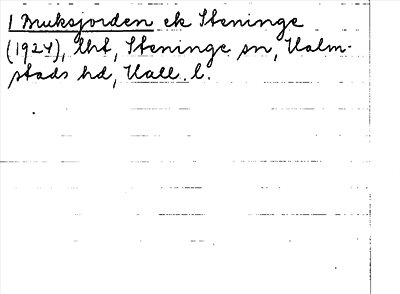 1 Bruksjorden ek Steninge
(1927), lht, Steninge sn, Halm-
stads hd, Hall. l.